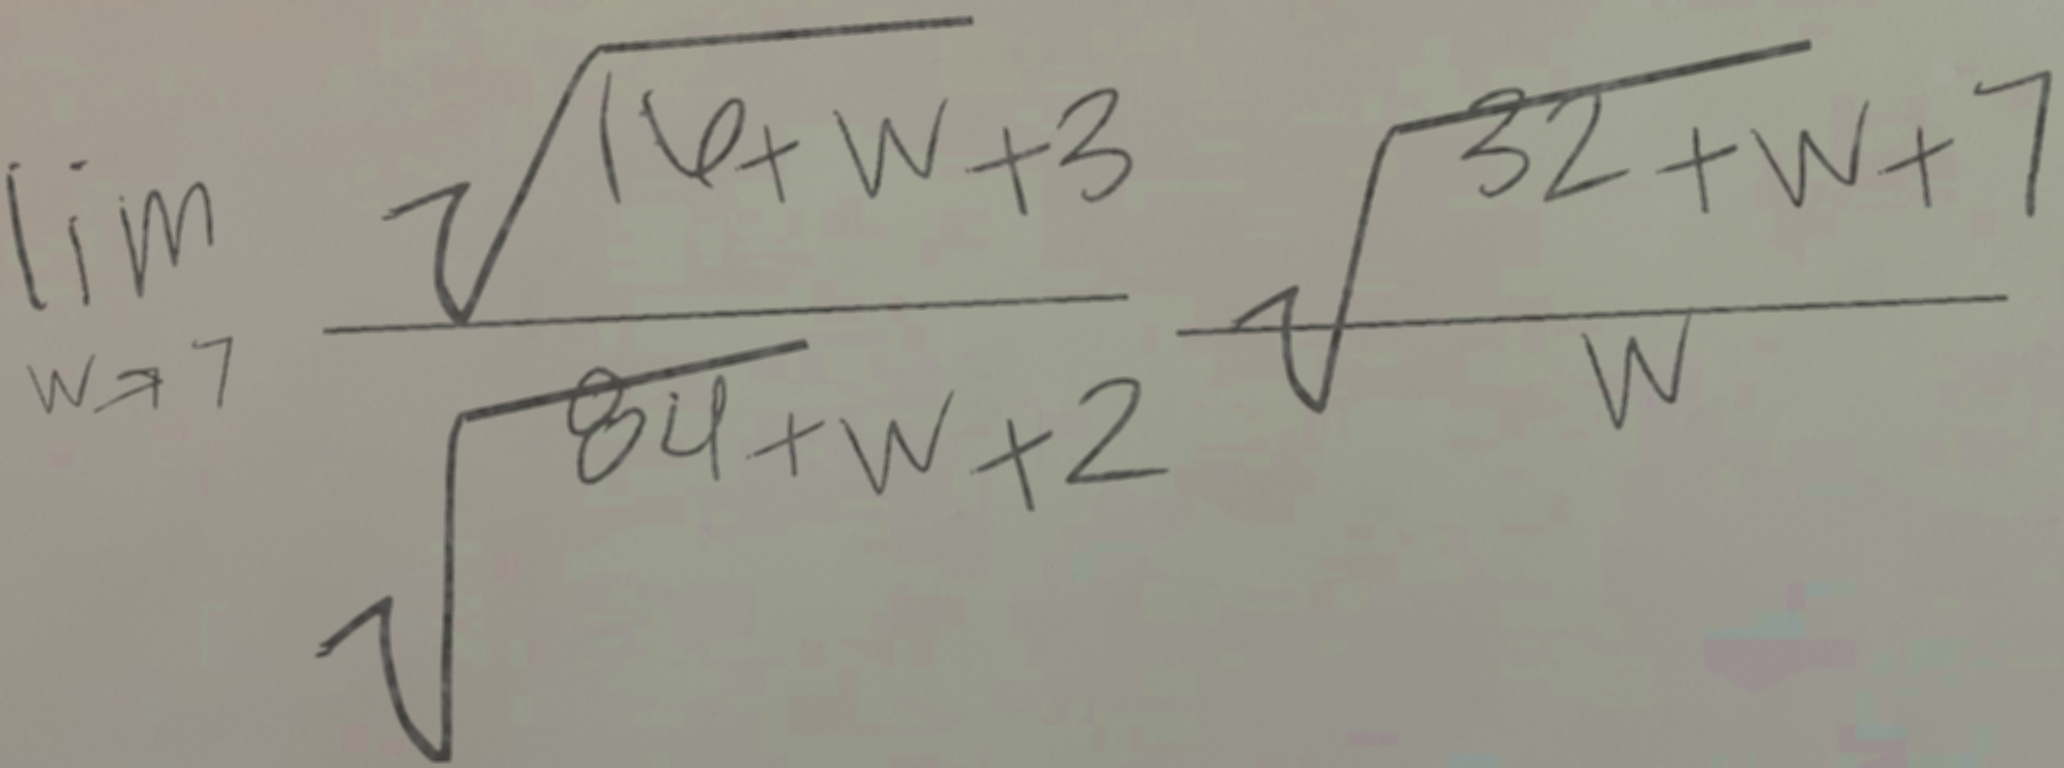 lim w→7 \frac{\sqrt{16+w}+3}{\sqrt{84+w}+2} \frac{\sqrt{32+w}+7}{w}